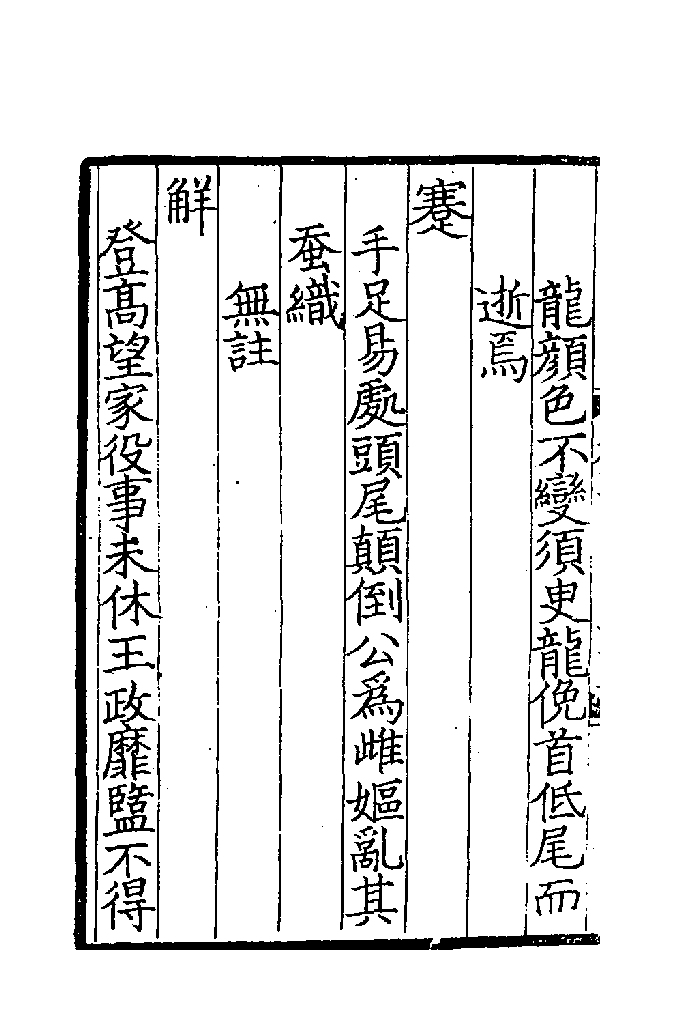 龍顔色不變須臾龍俛首低尾而
逝焉
蹇
手足易處頭尾顛倒公爲雌嫗亂其
蚕織
無註
觧
登髙望家役事未休王政靡盬不得